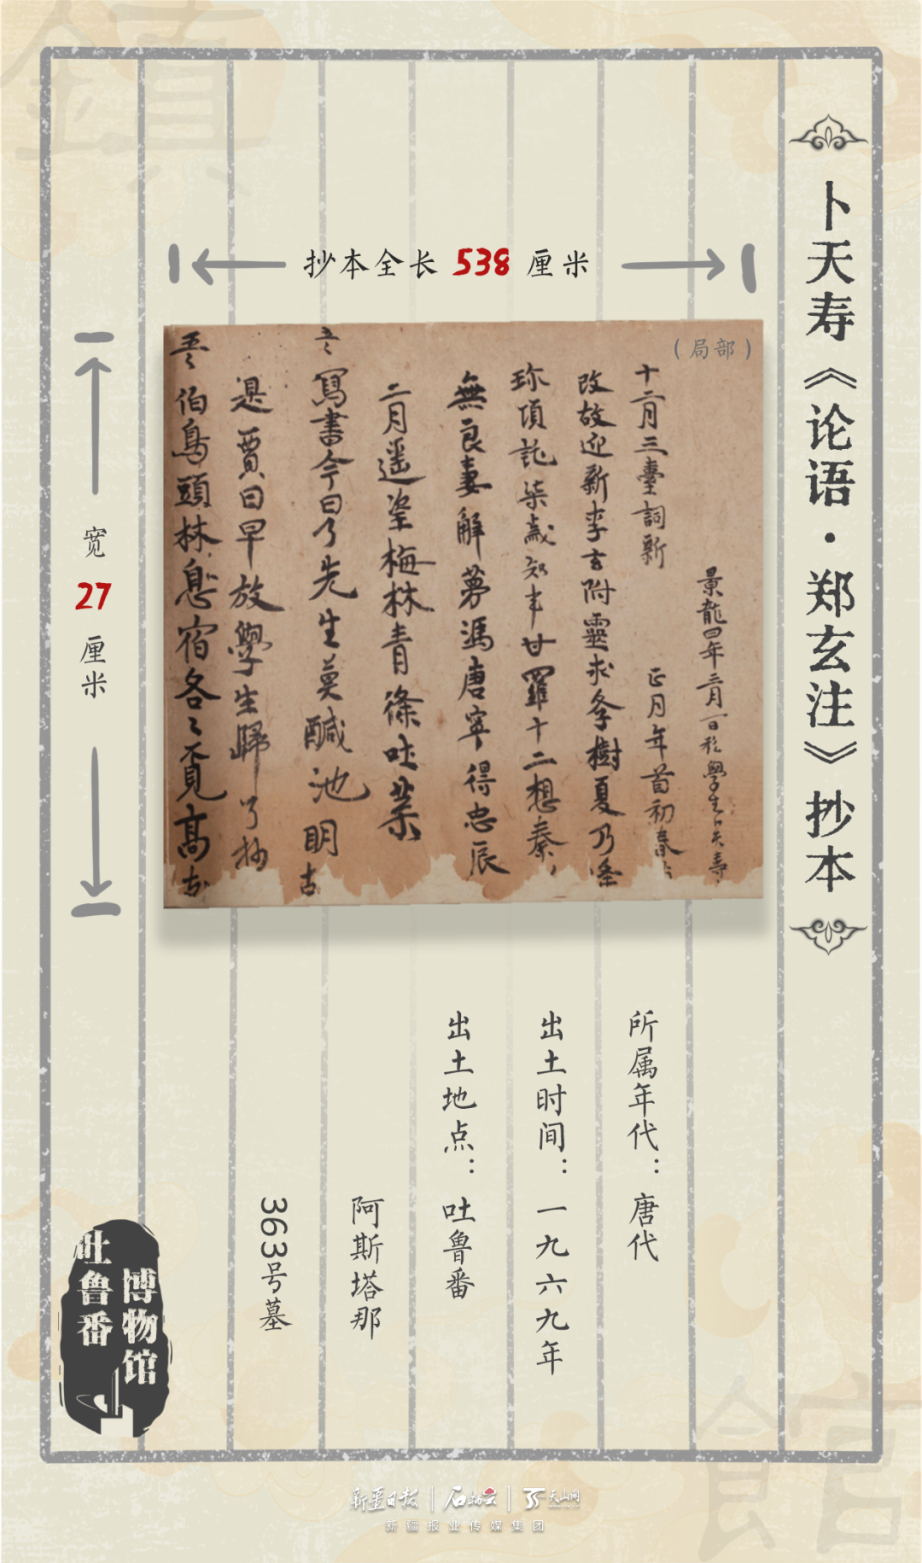 鎮
館
卜天寿《论语·郑玄注》抄本
抄本全长 538 厘米
宽 27 厘米
(局部)
景龍四年三月一日私學生卜天壽
十二月三臺詞新 正月年首初春
改故迎新李玄附靈求學樹夏乃逢
珎項託柒歲知事甘羅十二想秦
無良妻解夢馮唐寧得忠辰
二月遥望梅林青條吐葉
寫書今日了先生莫醎池明
是賈日早放學生歸了抄
伯鳥頭林息宿各〻覓高
所属年代：唐代
出土时间：一九六九年
出土地点：吐鲁番
阿斯塔那
363号墓
吐鲁番
博物馆
新疆日报 | 石榴云 | 天山网
新疆报业传媒集团